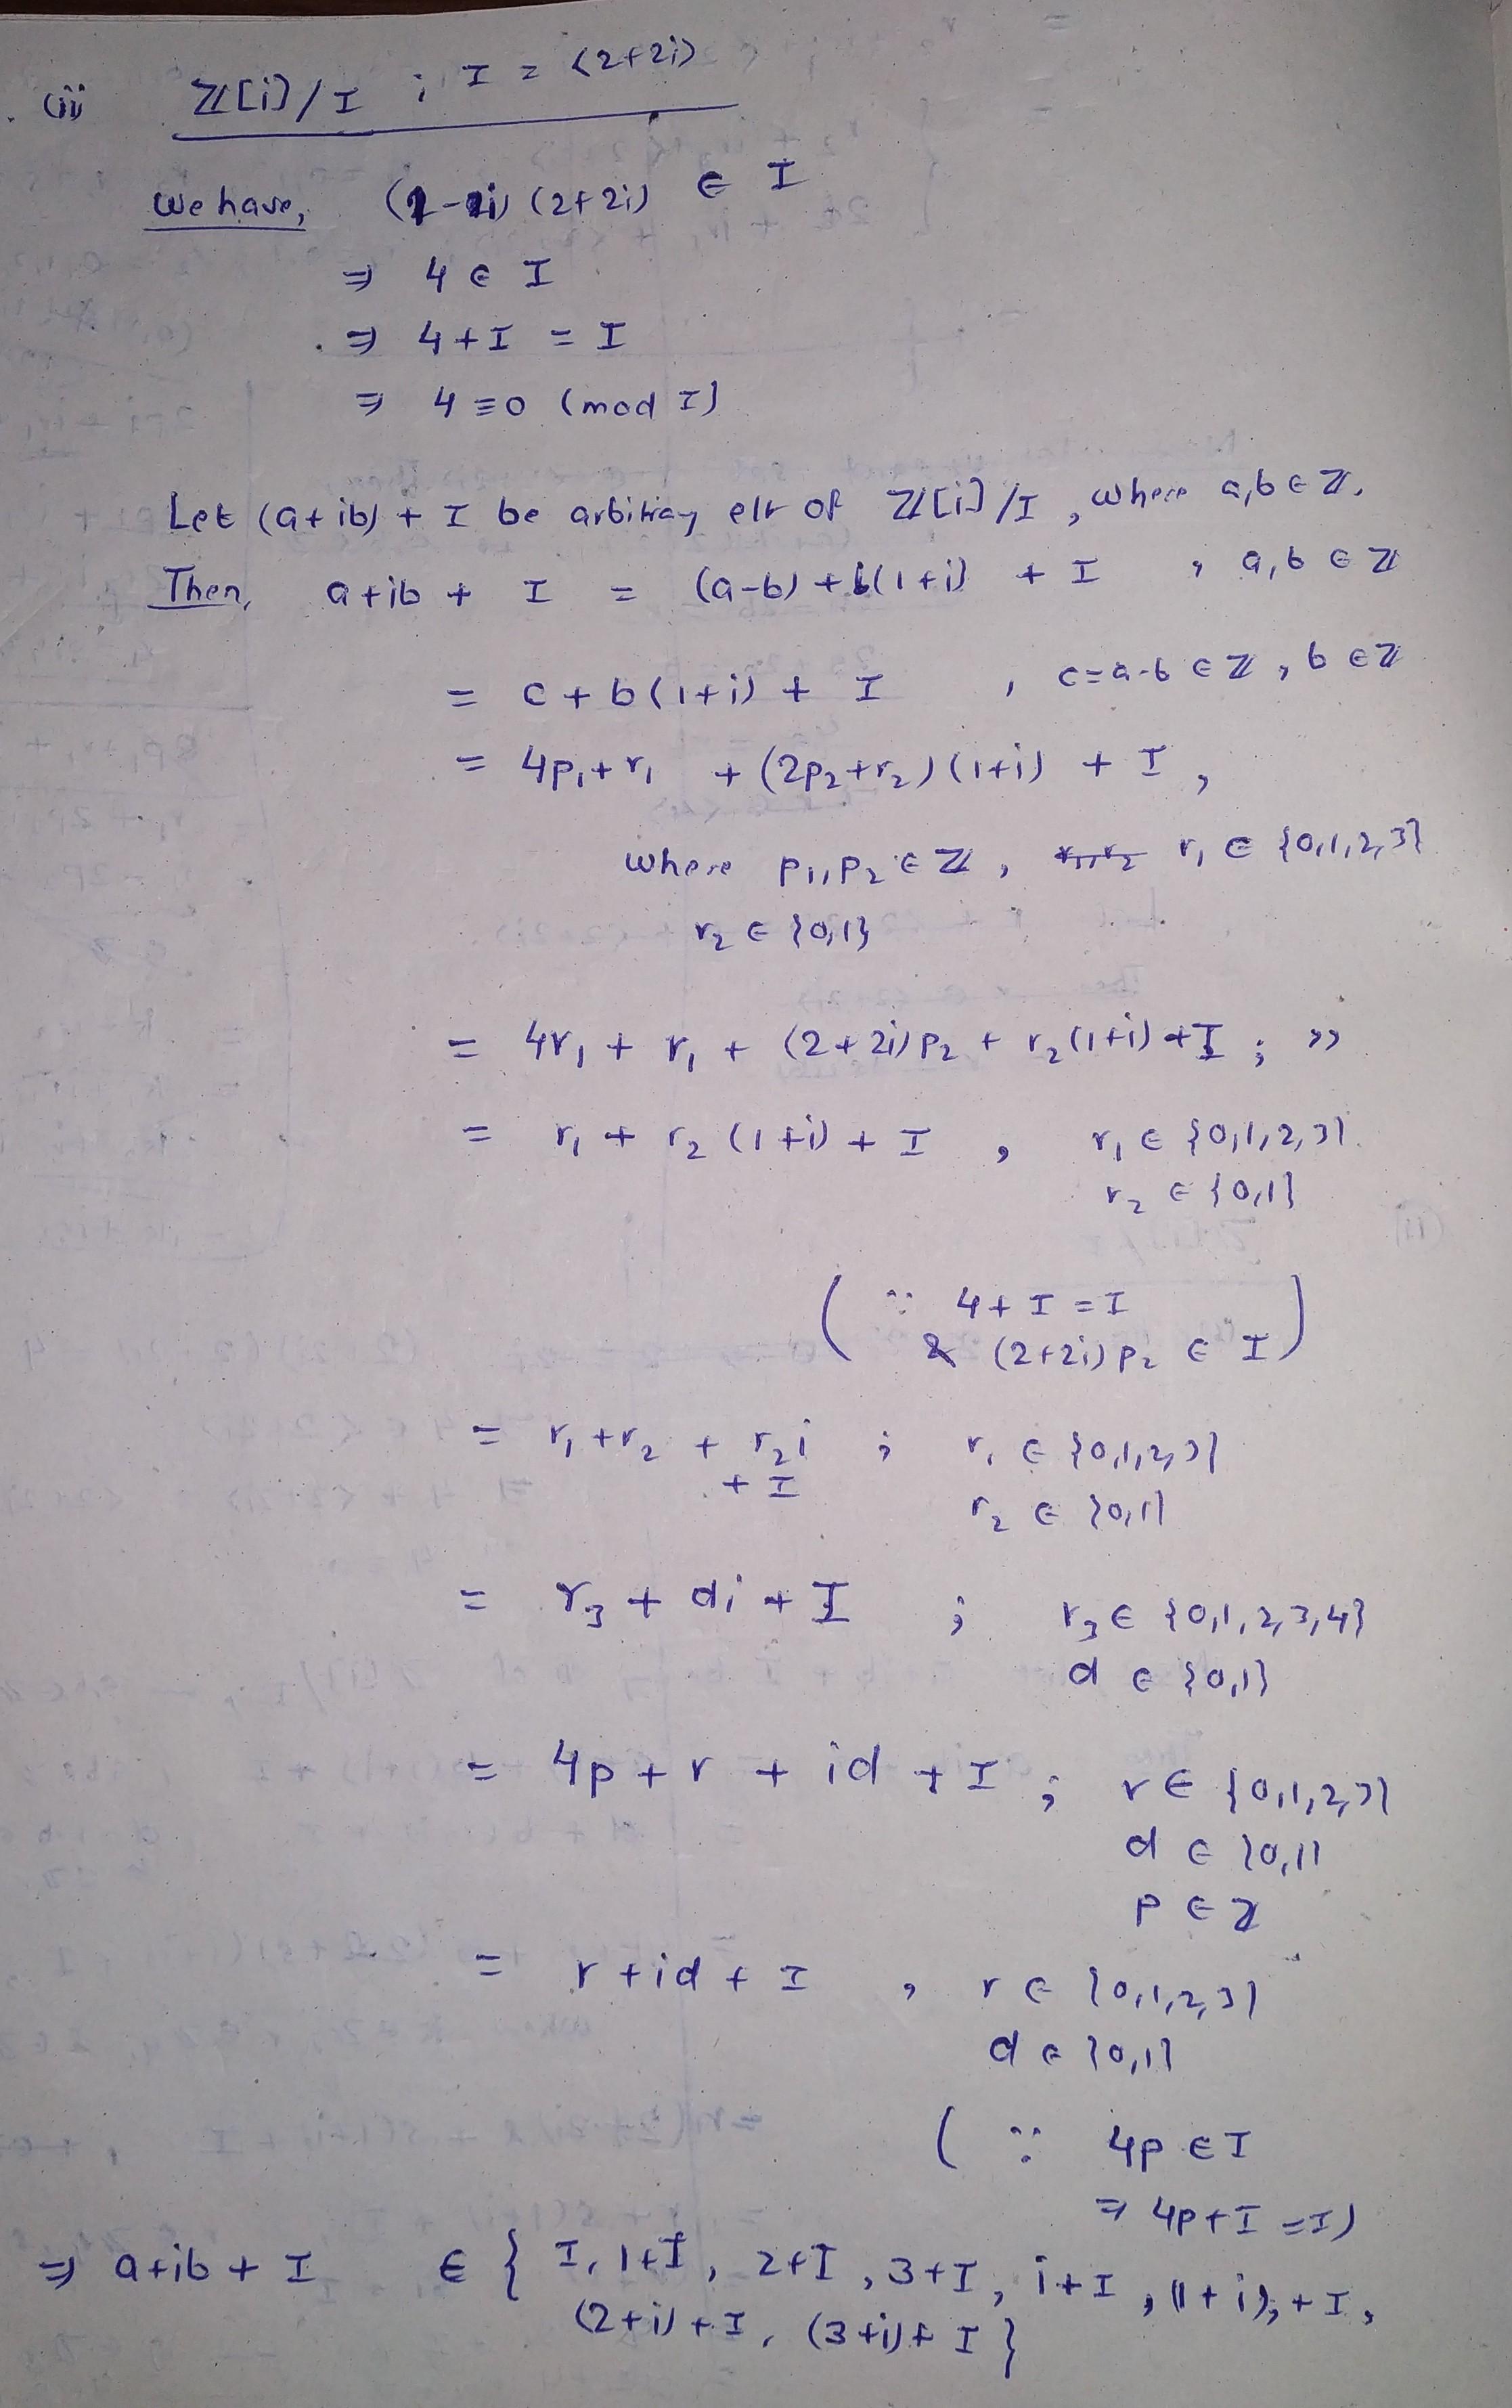 (ii) Z[i]/I ; I = <2+2i>
We have, (1-i) (2+2i) ∈ I
⇒ 4 ∈ I
⇒ 4+I = I
⇒ 4 ≡ 0 (mod I)
Let (a+ib) + I be arbitray elt of Z[i]/I , where a,b ∈ Z.
Then, a+ib + I = (a-b) + b(1+i) + I , a,b ∈ Z
= c + b(1+i) + I , c=a-b ∈ Z , b ∈ Z
= 4p₁+r₁ + (2p₂+r₂)(1+i) + I ,
where p₁,p₂ ∈ Z , r₁ ∈ {0,1,2,3}
r₂ ∈ {0,1}
= 4r₁ + r₁ + (2+2i)p₂ + r₂(1+i) + I ; ,,
= r₁ + r₂ (1+i) + I , r₁ ∈ {0,1,2,3}.
r₂ ∈ {0,1}
( ∵ 4+I = I
& (2+2i)p₂ ∈ I )
= r₁+r₂ + r₂i ; r₁ ∈ {0,1,2,3}
+ I r₂ ∈ {0,1}
= r₃ + di + I ; r₃ ∈ {0,1,2,3,4}
d ∈ {0,1}
= 4p + r + id + I ; r ∈ {0,1,2,3}
d ∈ {0,1}
p ∈ Z
= r + id + I , r ∈ {0,1,2,3}
d ∈ {0,1}
( ∵ 4p ∈ I
⇒ 4p+I = I)
⇒ a+ib + I ∈ { I, 1+I, 2+I, 3+I, i+I, (1+i)+I,
(2+i)+I, (3+i)+I }